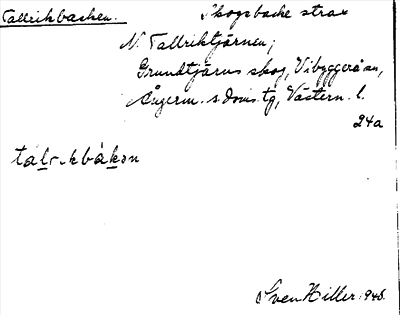 Tallrikbacken. Skogsbacke strax
N. Tallriktjärnen;
Grundtjärns skog, Vibyggeråsn,
Ångerm. s. doms. tg, Västern. l.
24a
Sven Hiller 1945.